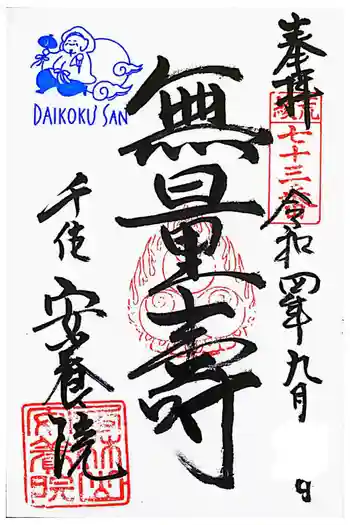 奉拝
七十三番
令和四年九月 日
無量壽
DAIKOKU SAN
千住
安養院